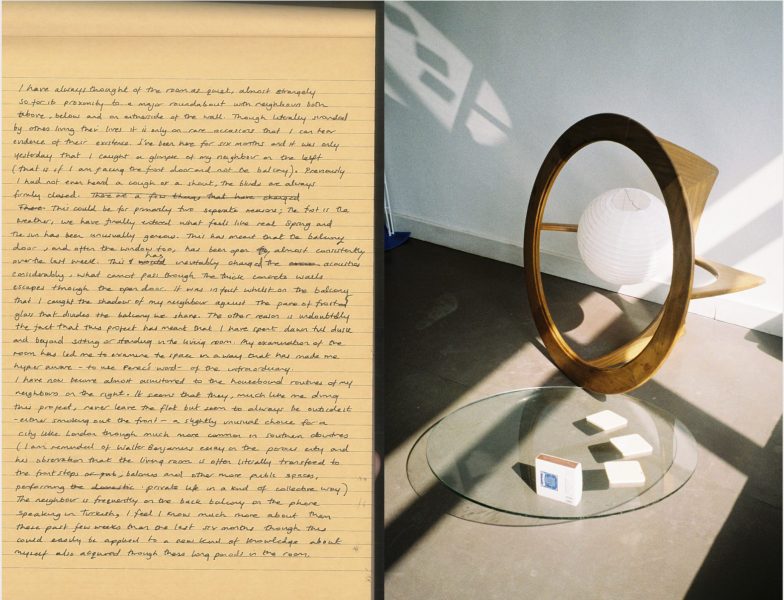 I have always thought of the room as quiet, almost strangely
so for its proximity to a major roundabout with neighbours both
above, below and on eitherside of the wall. Though literally surrounded
by others living their lives it is only on rare occasions that I can hear
evidence of their existence. I've been here for six months and it was only
yesterday that I caught a glimpse of my neighbour on the left
(that is if I am facing the front door and not the balcony). Previously
I had not even heard a cough or a shout, the blinds are always
firmly closed. There are a few things that have changed
There. This could be for primarily two separate reasons; the first is the
weather, we have finally entered what feels like real Spring and
the sun has been unusually generous. This has meant that the balcony
door, and often the window too, has been open almost consistently
over the last week. This has inevitably changed the acoustics
considerably, what cannot pass through the thick concrete walls
escapes through the open door. It was in fact whilst on the balcony
that I caught the shadow of my neighbour against the pane of frosted
glass that divides the balcony we share. The other reason is undoubtedly
the fact that this project has meant that I have spent dawn till dusk
and beyond sitting or standing in the living room. My examination of the
room has led me to examine the space in a way that has made me
hyper aware - to use Perec's word - of the infraordinary.
I have now become almost accustomed to the housebound routines of my
neighbours on the right. It seems that they, much like me during
this project, never leave the flat but seem to always be outside it
- either smoking out the front - a slightly unusual choice for a
city like London though much more common in southern countries
(I am reminded of Walter Benjamins essay on the porous city and
his observation that the living room is often literally transfered to
the front steps or path, balconies and other more public spaces,
performing the domestic private life in a kind of collective way)
The neighbour is frequently on the back balcony on the phone
speaking in Turkish, I feel I know much more about them
these past few weeks than the last six months though this
could easily be applied to a new kind of knowledge about
myself also acquired through these long periods in the room.